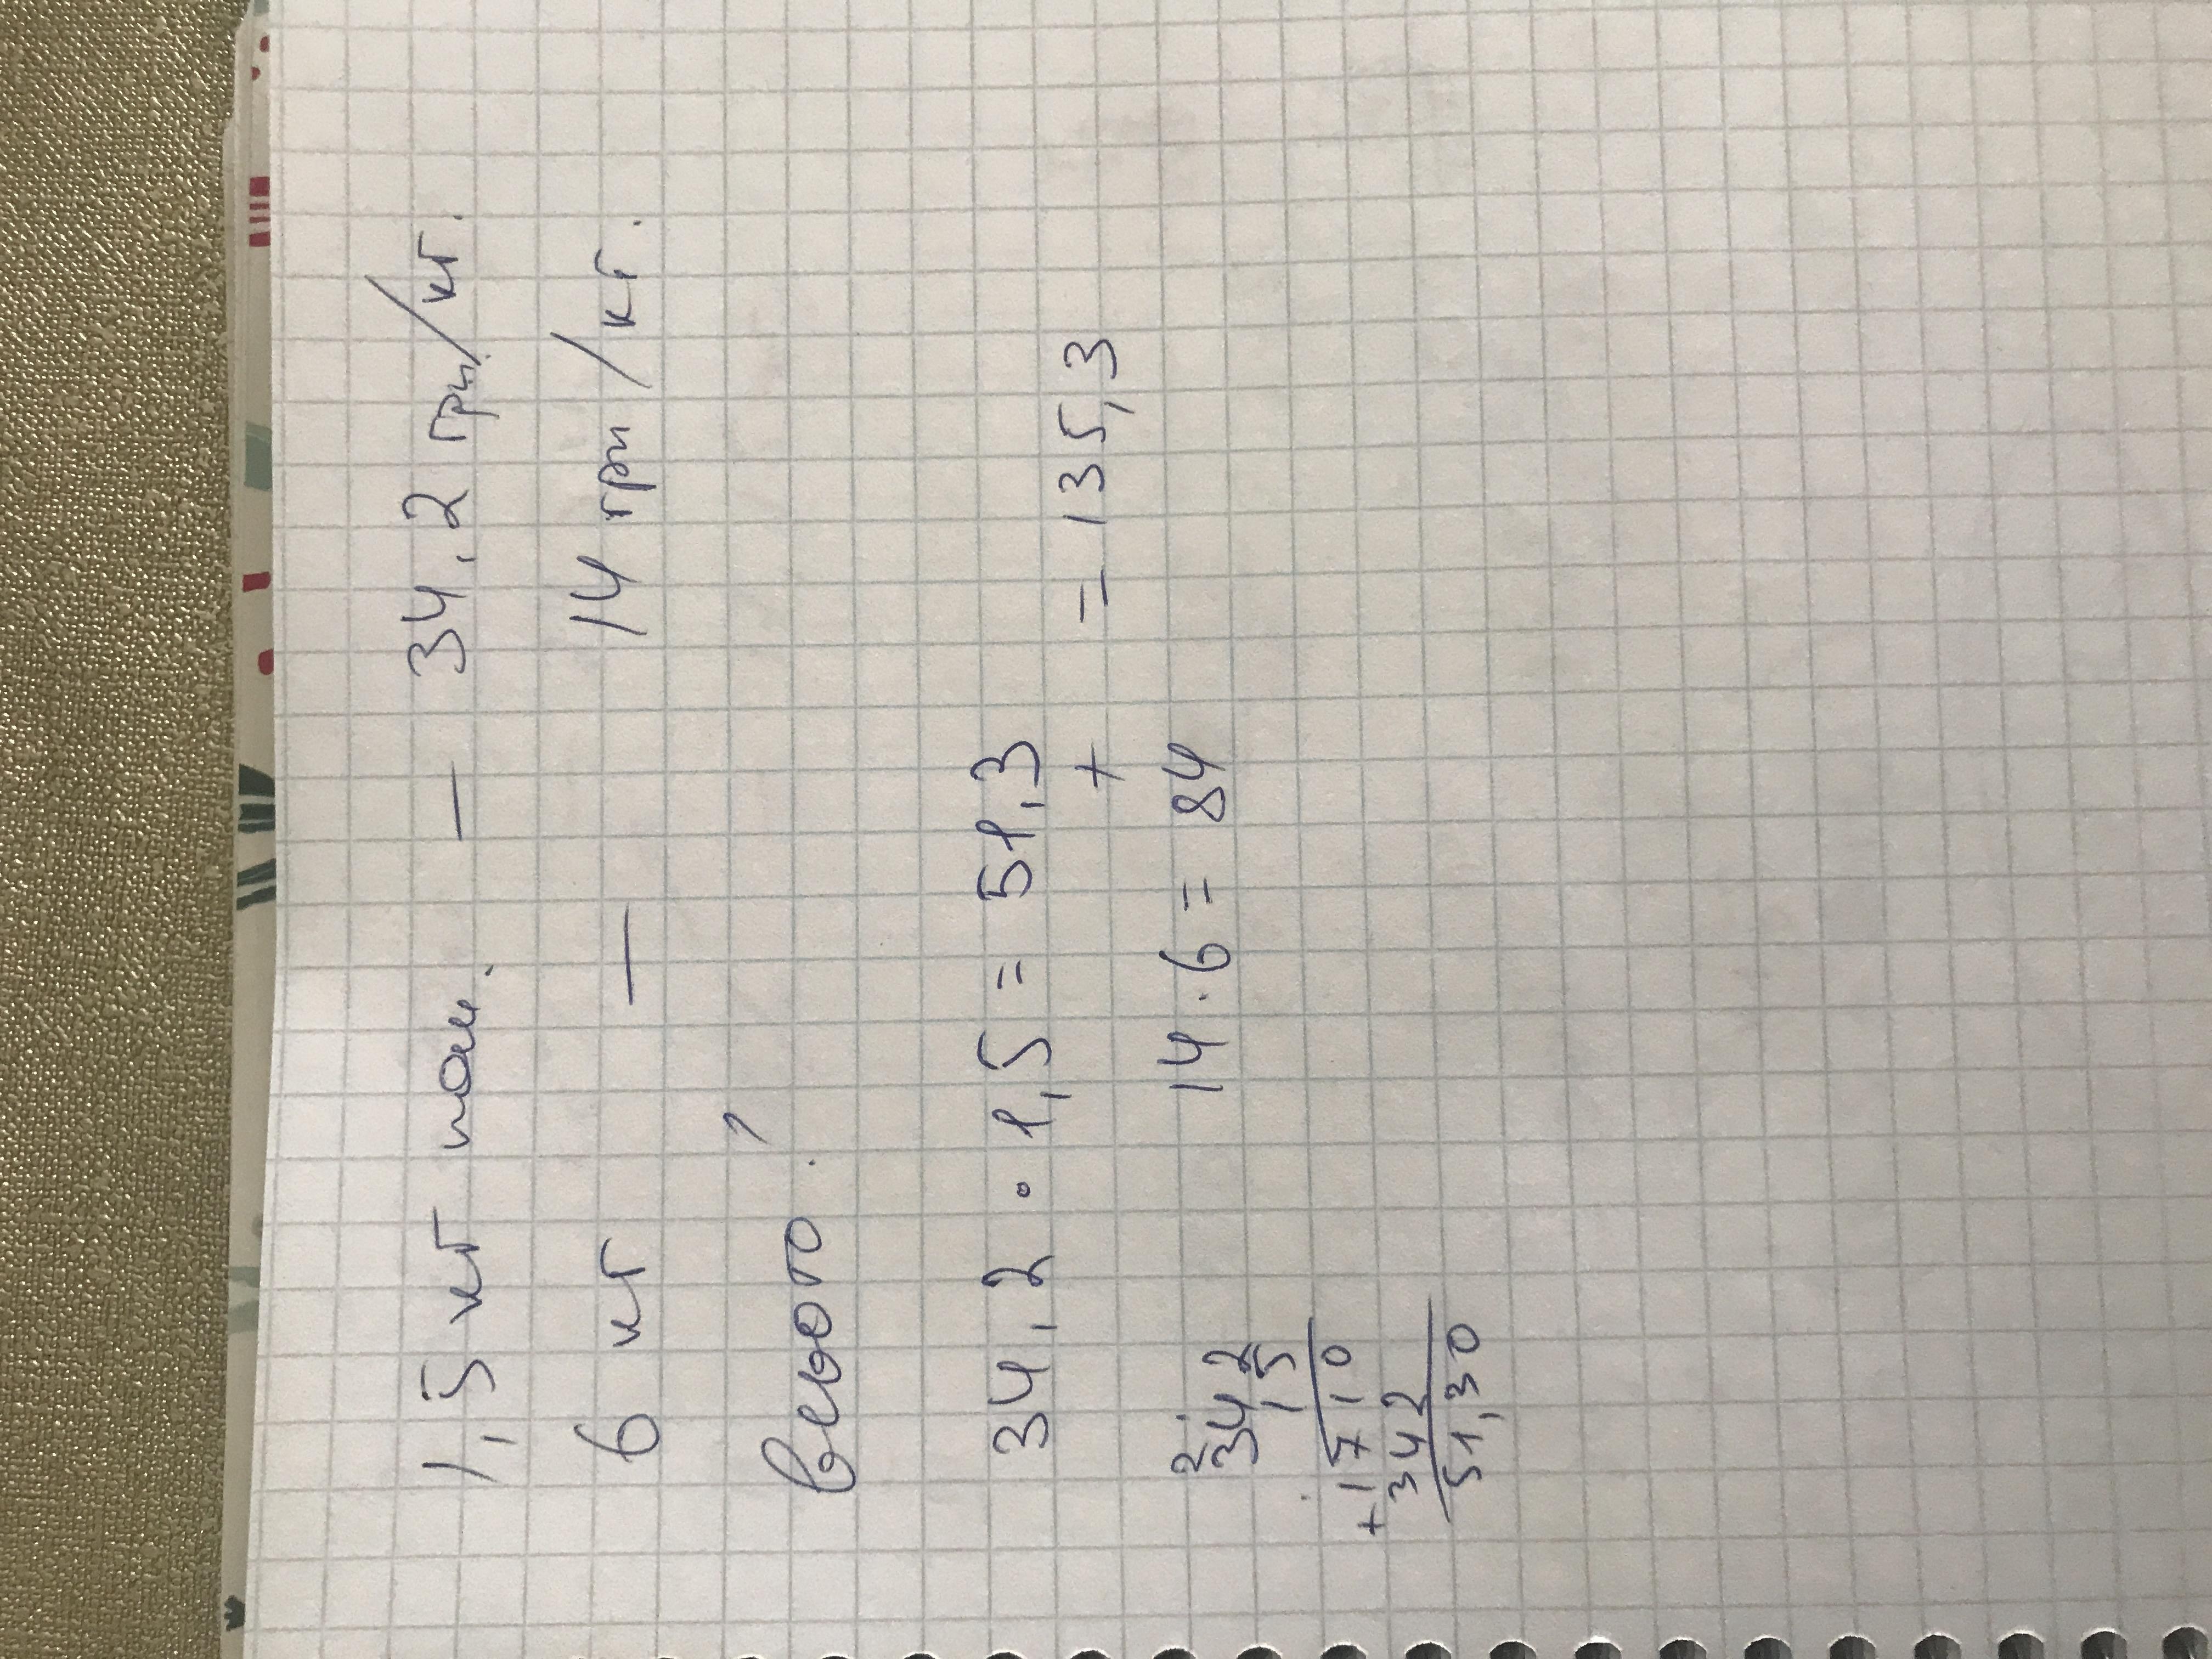 1,5 кг пом. — 34,2 грн/кг.
6 кг — 14 грн/кг.
всього?
34,2 · 1,5 = 51,3
+ = 135,3
14 · 6 = 84
2
342
15
+1710
342
51,30